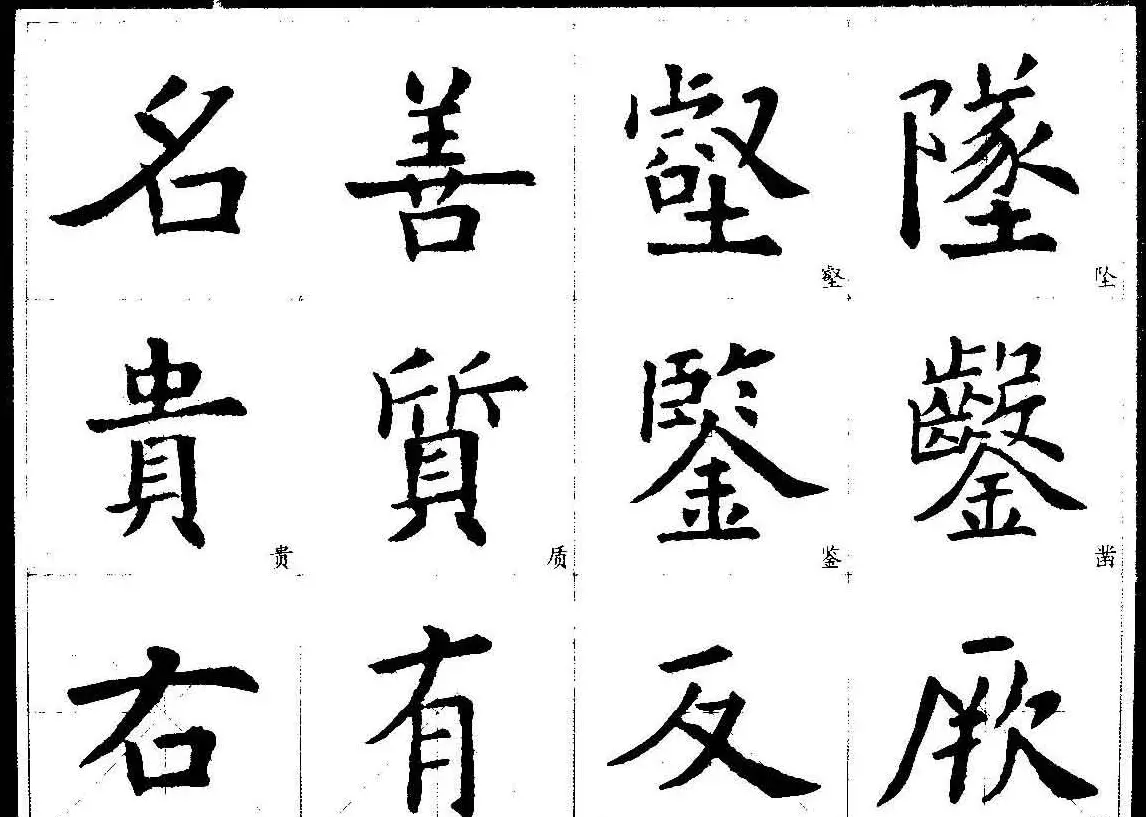 名善壑墜
壑 坠
貴質鑒鑿
贵 质 鉴 凿
右有反厥